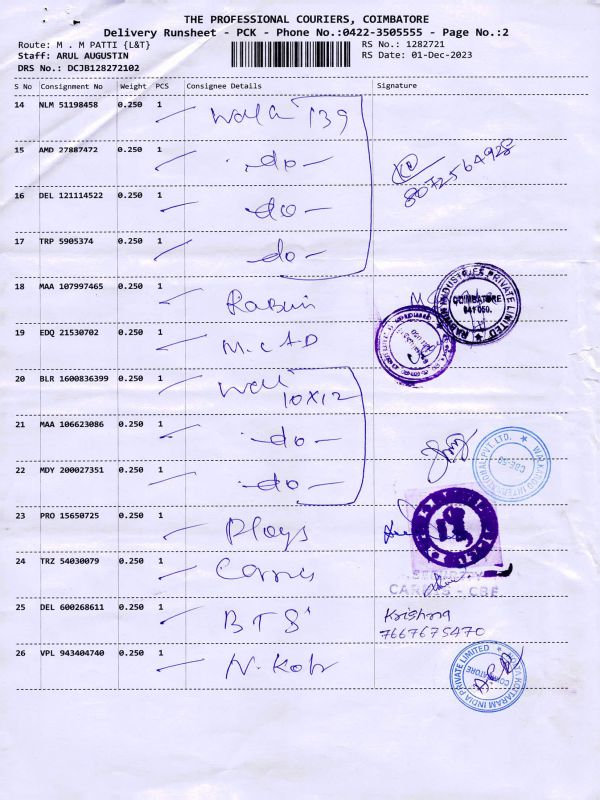 THE PROFESSIONAL COURIERS, COIMBATORE
Delivery Runsheet - PCK - Phone No.:0422-3505555 - Page No.:2
Route: M . M PATTI {L&T}
Staff: ARUL AUGUSTIN
DRS No.: DCJB128272102
RS No.: 1282721
RS Date: 01-Dec-2023
S No Consignment No Weight PCS Consignee Details Signature
14 NLM 51198458 0.250 1 139
15 AMD 27887472 0.250 1 -do-
8072564928
16 DEL 121114522 0.250 1 -do-
17 TRP 5905374 0.250 1 -do-
18 MAA 107997465 0.250 1
INDUSTRIES PRIVATE LIMITED
COIMBATORE
641 050.
19 EDQ 21530702 0.250 1
20 BLR 1600836399 0.250 1 10x12
21 MAA 106623086 0.250 1 -do-
22 MDY 200027351 0.250 1 -do-
INTERNATIONAL PVT. LTD.
CBE-50
23 PRO 15650725 0.250 1
24 TRZ 54030079 0.250 1
SECURITY
- CBE
25 DEL 600268611 0.250 1 BTS Krishna
7667675470
26 VPL 943404740 0.250 1
INDIA PRIVATE LIMITED
COIMBATORE